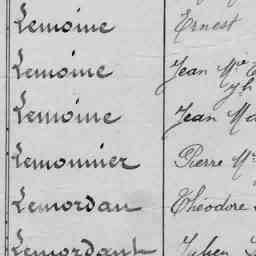 Lemoine Ernest
Lemoine Jean Mie
Lemoine Jean Ma
Lemonnier Pierre Mie
Lemordan Théodore
Lemordant Julien